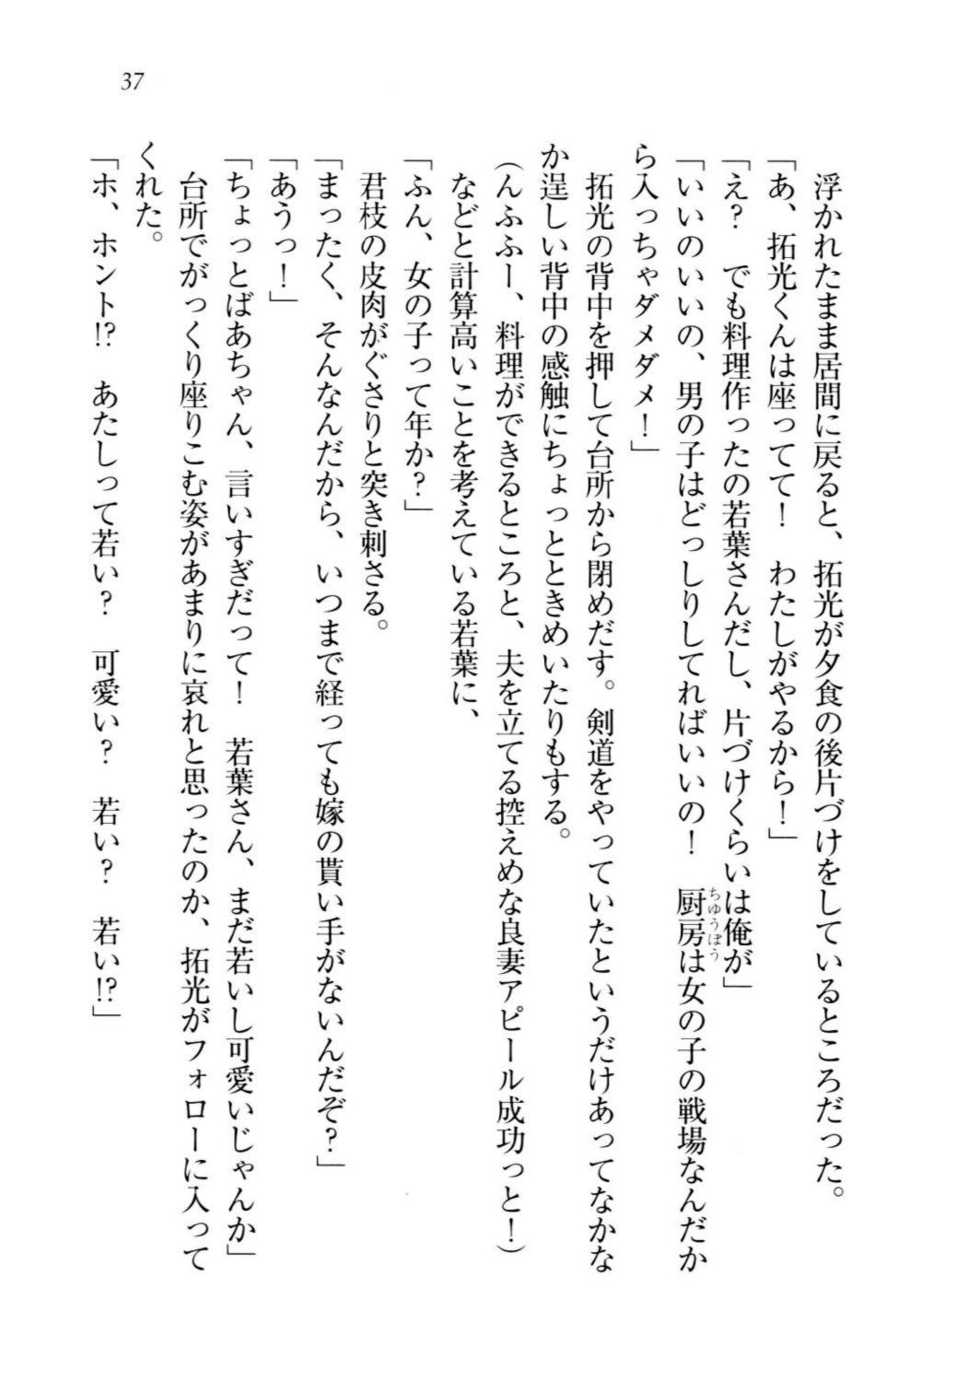 37
浮かれたまま居間に戻ると、拓光が夕食の後片づけをしているところだった。
「あ、拓光くんは座ってて！　わたしがやるから！」
「え？　でも料理作ったの若葉さんだし、片づけくらいは俺が」
「いいのいいの、男の子はどっしりしてればいいの！　厨房は女の子の戦場なんだか
ちゅうぼう
ら入っちゃダメダメ！」
拓光の背中を押して台所から閉めだす。剣道をやっていたというだけあってなかな
か逞しい背中の感触にちょっとときめいたりもする。
（んふふー、料理ができるところと、夫を立てる控えめな良妻アピール成功っと！）
などと計算高いことを考えている若葉に、
「ふん、女の子って年か？」
君枝の皮肉がぐさりと突き刺さる。
「まったく、そんなんだから、いつまで経っても嫁の貰い手がないんだぞ？」
「あうっ！」
「ちょっとばあちゃん、言いすぎだって！　若葉さん、まだ若いし可愛いじゃんか」
台所でがっくり座りこむ姿があまりに哀れと思ったのか、拓光がフォローに入って
くれた。
「ホ、ホント!?　あたしって若い？　可愛い？　若い？　若い!?」